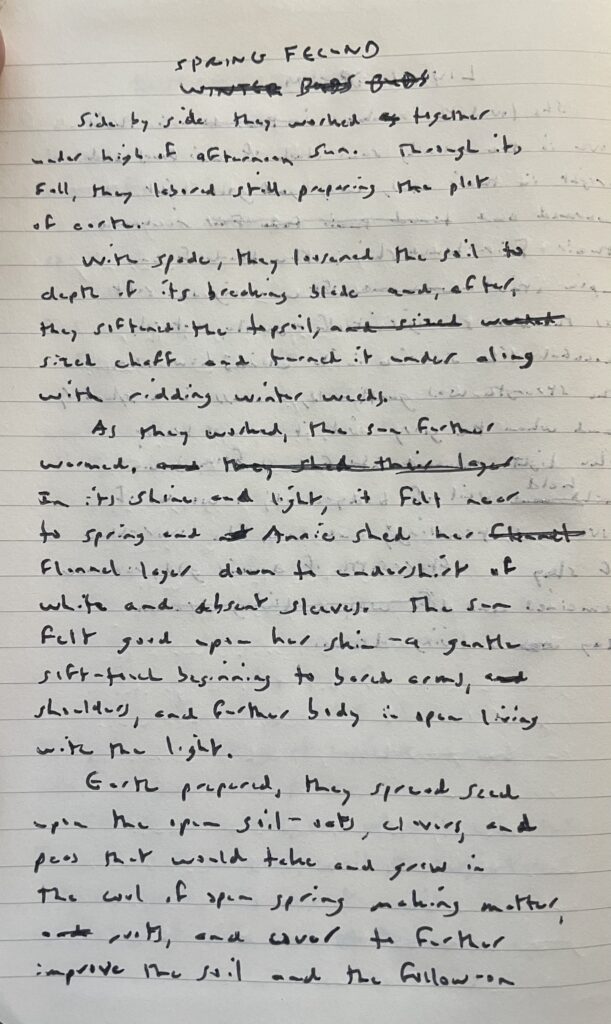 SPRING FECUND
WINTER BUDS BUDS
Side by side they worked as together
under high of afternoon sun. Through its
fall, they labored still preparing the plot
of earth.
With spade, they loosened the soil to
depth of its breaking blade and, after,
they softened the topsoil, and sized
sized chaff and turned it under along
with ridding winter weeds.
As they worked, the sun further
warmed, and they shed their layer
In its shine and light, it felt near
to spring and Annie shed her flannel
flannel layer down to undershirt of
white and absent sleeves. The sun
felt good upon her skin—a gentle
soft-touch beginning to bared arms, and
shoulders, and further body in open living
with the light.
Earth prepared, they spread seed
upon the open soil—oats, clovers, and
peas that would take and grow in
the cool of open spring making matter,
and roots, and cover to further
improve the soil and the follow-on